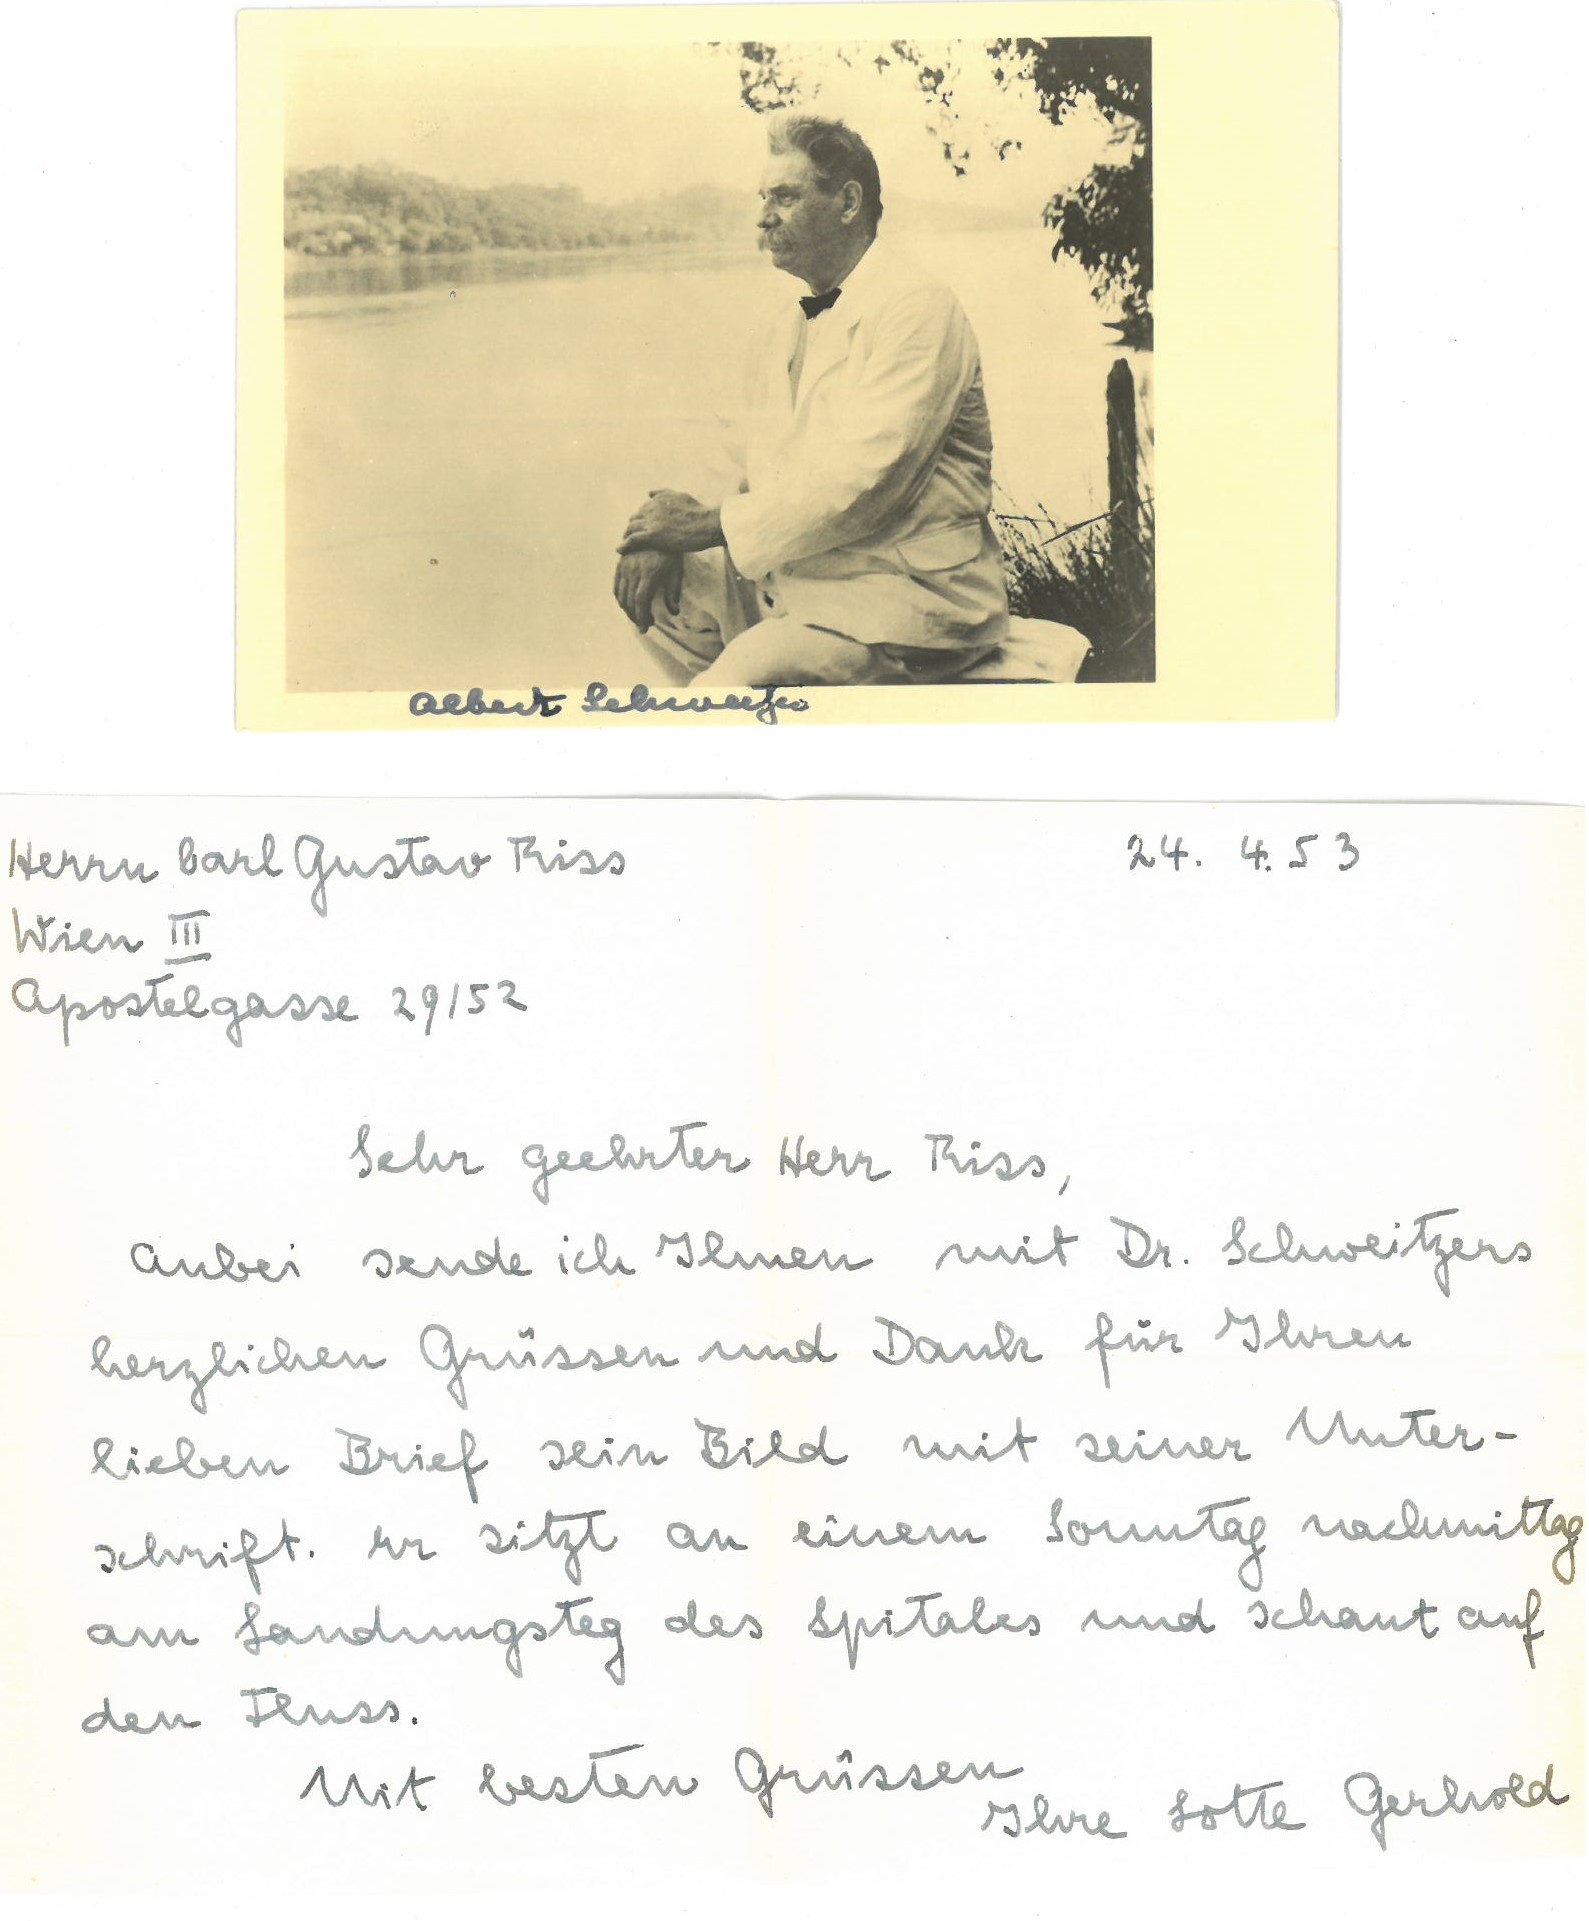 Albert Schweitzer
Herrn Carl Gustav Riss
24. 4. 53
Wien III
Apostelgasse 29/52
Sehr geehrter Herr Riss,
Anbei sende ich Ihnen mit Dr. Schweitzers
herzlichen Grüssen und Dank für Ihren
lieben Brief sein Bild mit seiner Unter-
schrift. Er sitzt an einem Sonntag nachmittag
am Landungsteg des Spitales und schaut auf
den Fluss.
Mit besten Grüssen
Ihre Lotte Gerhold